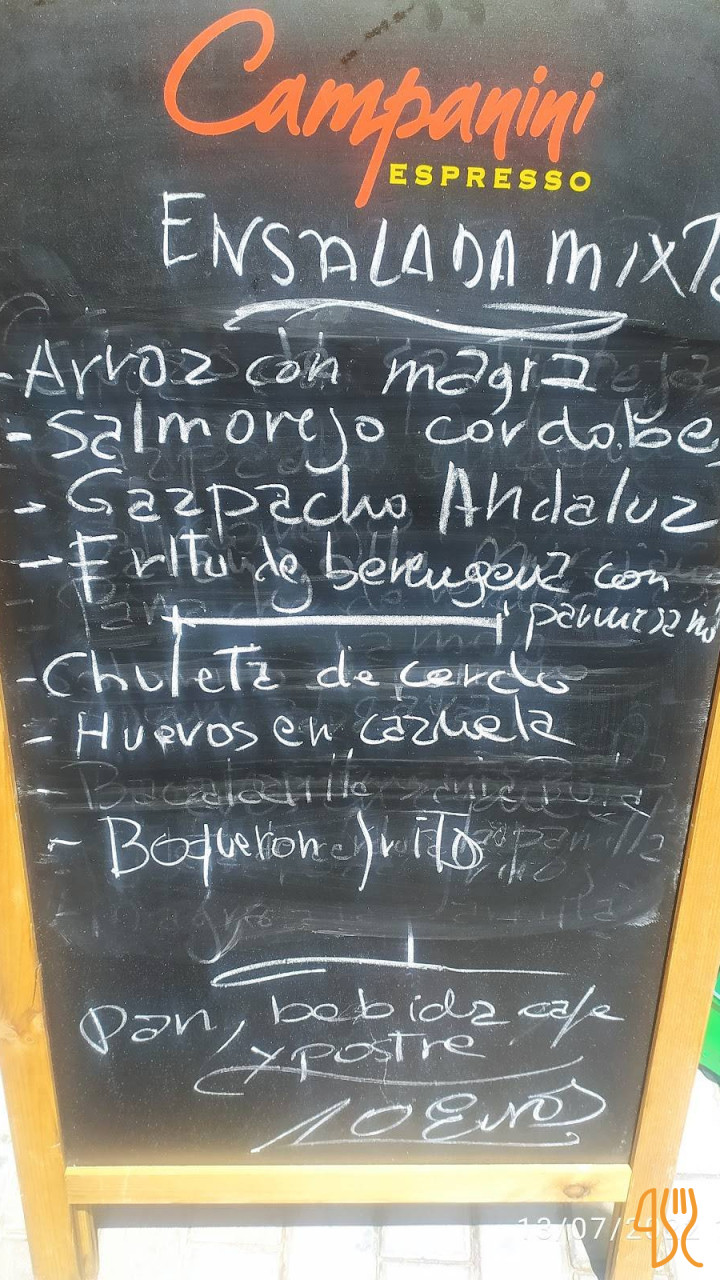 Campanini
ESPRESSO
ENSALADA MIXTa
- Arroz con magra
- Salmorejo cordobe
- Gazpacho Andaluz
- Fritu de berengena con
parmisano
- Chuleta de cerdo
- Huevos en cazuela
- Boqueron frito
Pan, bebida cafe
y postre
10 Euros
13/07/2022